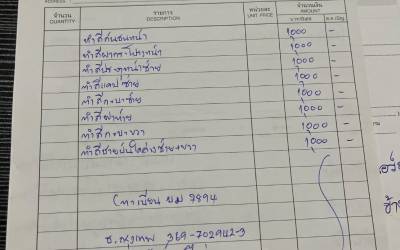 ADDRESS
จำนวน QUANTITY รายการ DESCRIPTION หน่วยละ UNIT PRICE จำนวนเงิน AMOUNT
บาท/Baht ส.ต./Stg.
ทำสีกันชนหน้า 1000 -
ทำสีฝากระโปรงหน้า 1000 -
ทำสีประตูหน้าซ้าย 1000 -
ทำสีแคปซ้าย 1000 -
ทำสีกะบะซ้าย 1000 -
ทำสีฝาท้าย 1000 -
ทำสีกะบะขวา 1000 -
ทำสีชายบันไดล่างซ้าย+ขวา 1000 -
(ทะเบียน ผม 7894
ธ.กรุงเทพ 369-702942-3